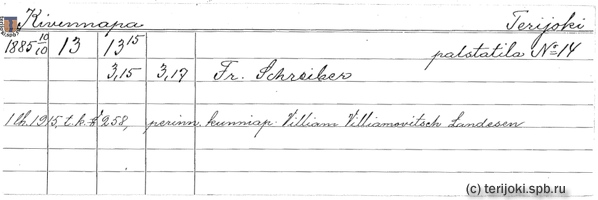 Kivennapa Terijoki
1885 10/10 13 13 15 palstatila No 14
3,15 3,17 Fr. Schreiber
1 lh. 1915, t.k. § 258, perinn. kunniap. Villiam Villiamovitsch Landesen
(c) terijoki.spb.ru